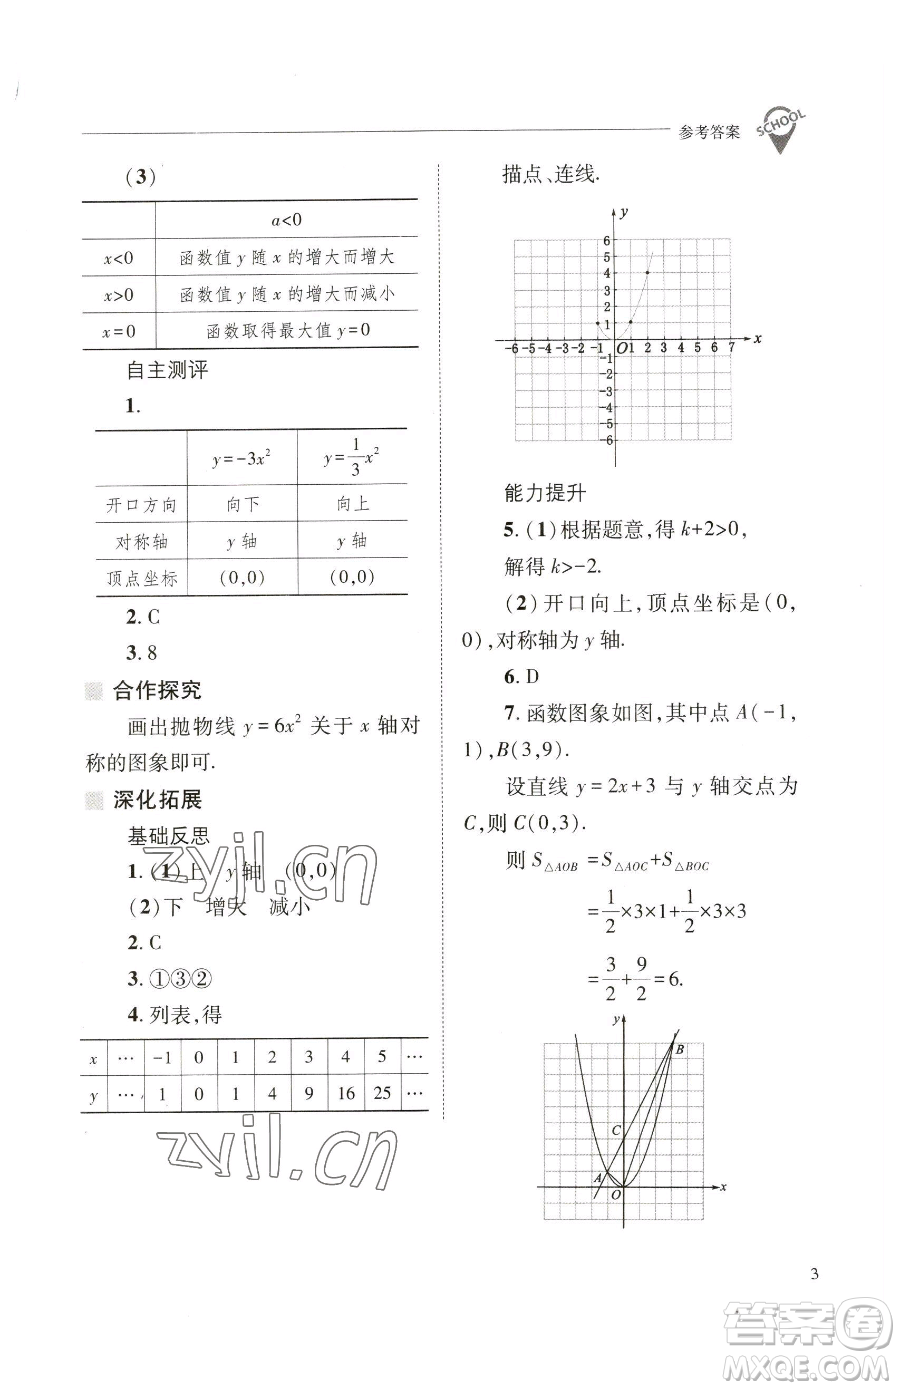 参考答案
SCHOOL
(3)
a<0
x<0 函数值 y 随 x 的增大而增大
x>0 函数值 y 随 x 的增大而减小
x=0 函数取得最大值 y=0
自主测评
1.
y=-3x² y=1/3x²
开口方向 向下 向上
对称轴 y 轴 y 轴
顶点坐标 (0,0) (0,0)
2. C
3. 8
合作探究
画出抛物线 y=6x² 关于 x 轴对
称的图象即可.
深化拓展
基础反思
1. (1)上 y 轴 (0,0)
(2)下 增大 减小
2. C
3. ①③②
4. 列表,得
x … -1 0 1 2 3 4 5 …
y … 1 0 1 4 9 16 25 …
描点、连线.
y
6
5
4
3
2
1
-6 -5 -4 -3 -2 -1 O 1 2 3 4 5 6 7 x
-1
-2
-3
-4
-5
-6
能力提升
5. (1)根据题意,得 k+2>0,
解得 k>-2.
(2)开口向上,顶点坐标是(0,
0),对称轴为 y 轴.
6. D
7. 函数图象如图,其中点 A(-1,
1),B(3,9).
设直线 y=2x+3 与 y 轴交点为
C,则 C(0,3).
则 S△AOB =S△AOC+S△BOC
=1/2×3×1+1/2×3×3
=3/2+9/2=6.
y
B
C
A
O
x
3
zyjl.cn
zyjl.cn
答案圈
MXQE.COM